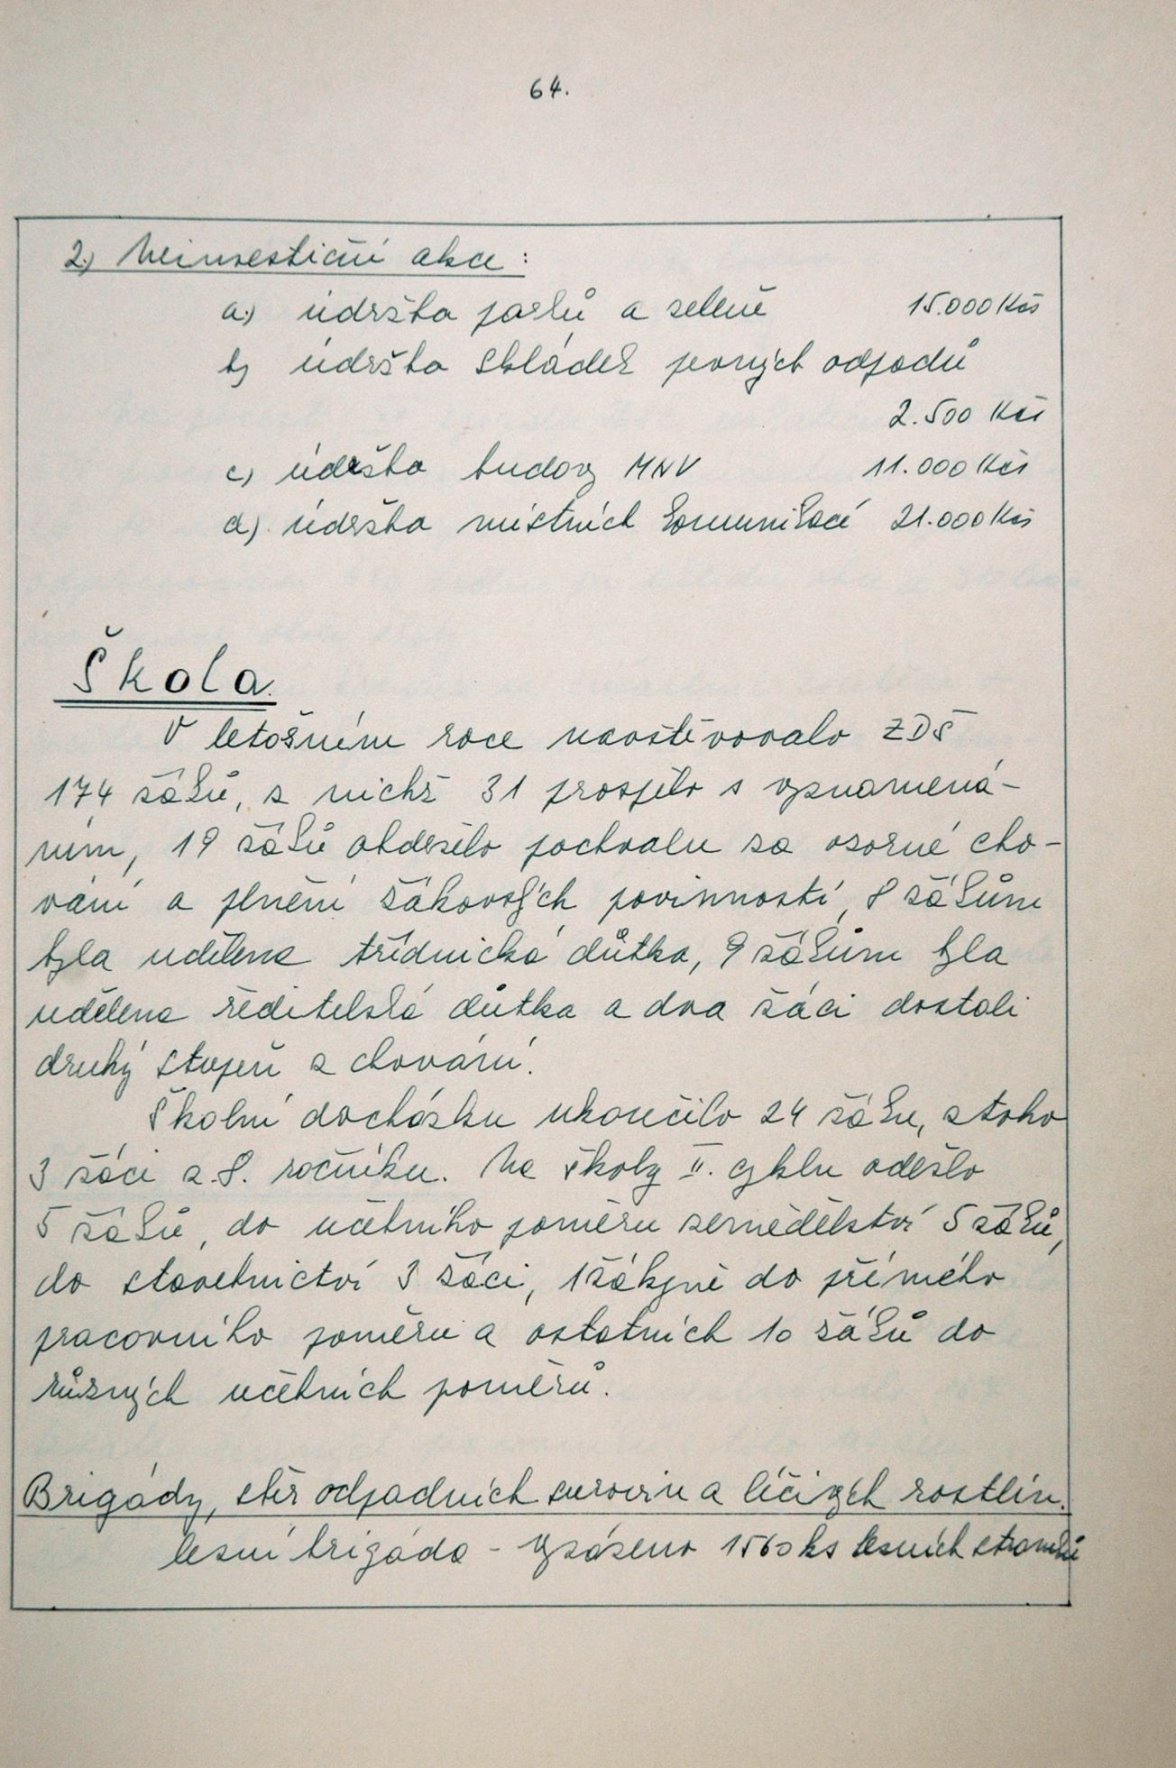 64.
2.) Neinvestiční akce :
a.) údržba parků a zeleně 15.000 Kčs
b) údržba skládek pevných odpadů
2.500 Kčs
c) údržba budovy MNV 11.000 Kčs
d.) údržba místních komunikací 21.000 Kčs
Škola.
V letošním roce navštěvovalo ZDŠ
174 žáků, z nichž 31 prospělo s vyznamená-
ním, 19 žáků obdrželo pochvalu za vzorné cho-
vání a plnění žákovských povinností, 8 žákům
byla udělena třídnická důtka, 9 žákům byla
udělena ředitelská důtka a dva žáci dostali
druhý stupeň z chování.
Školní docházku ukončilo 24 žáku, z toho
3 žáci z 8. ročníku. Na školy II. cyklu odešlo
5 žáků, do učebního poměru zemědělství 5 žáků,
do stavebnictví 3 žáci, 1 žákyně do přímého
pracovního poměru a ostatních 10 žáků do
různých učebních poměrů.
Brigády, sběr odpadních surovin a léčivých rostlin.
lesní brigáda - vysázeno 1560 ks lesních stromků